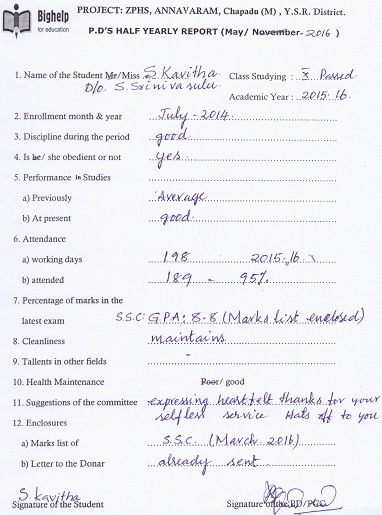 Bighelp
for education
PROJECT: ZPHS, ANNAVARAM, Chapadu (M) , Y.S.R. District.
P.D'S HALF YEARLY REPORT (May/ November-2016 )
1. Name of the Student Mr/Miss S. Kavitha Class Studying : X Passed
D/o. S. Srinivasulu Academic Year : 2015-16
2. Enrollment month & year July - 2014
3. Discipline during the period good
4. Is he/ she obedient or not yes
5. Performance in Studies
a) Previously Average
b) At present good
6. Attendance
a) working days 198 2015-16
b) attended 189 - 95%
7. Percentage of marks in the
latest exam S.S.C: G.P.A: 8.8 (Marks list enclosed)
8. Cleanliness maintains
9. Tallents in other fields -
10. Health Maintenance Poor/ good
11. Suggestions of the committee expressing heartfelt thanks for your
selfless service Hats off to you
12. Enclosures
a) Marks list of S.S.C (March 2016)
b) Letter to the Donar already sent
S. Kavitha
Signature of the Student Signature of the PD/PCO